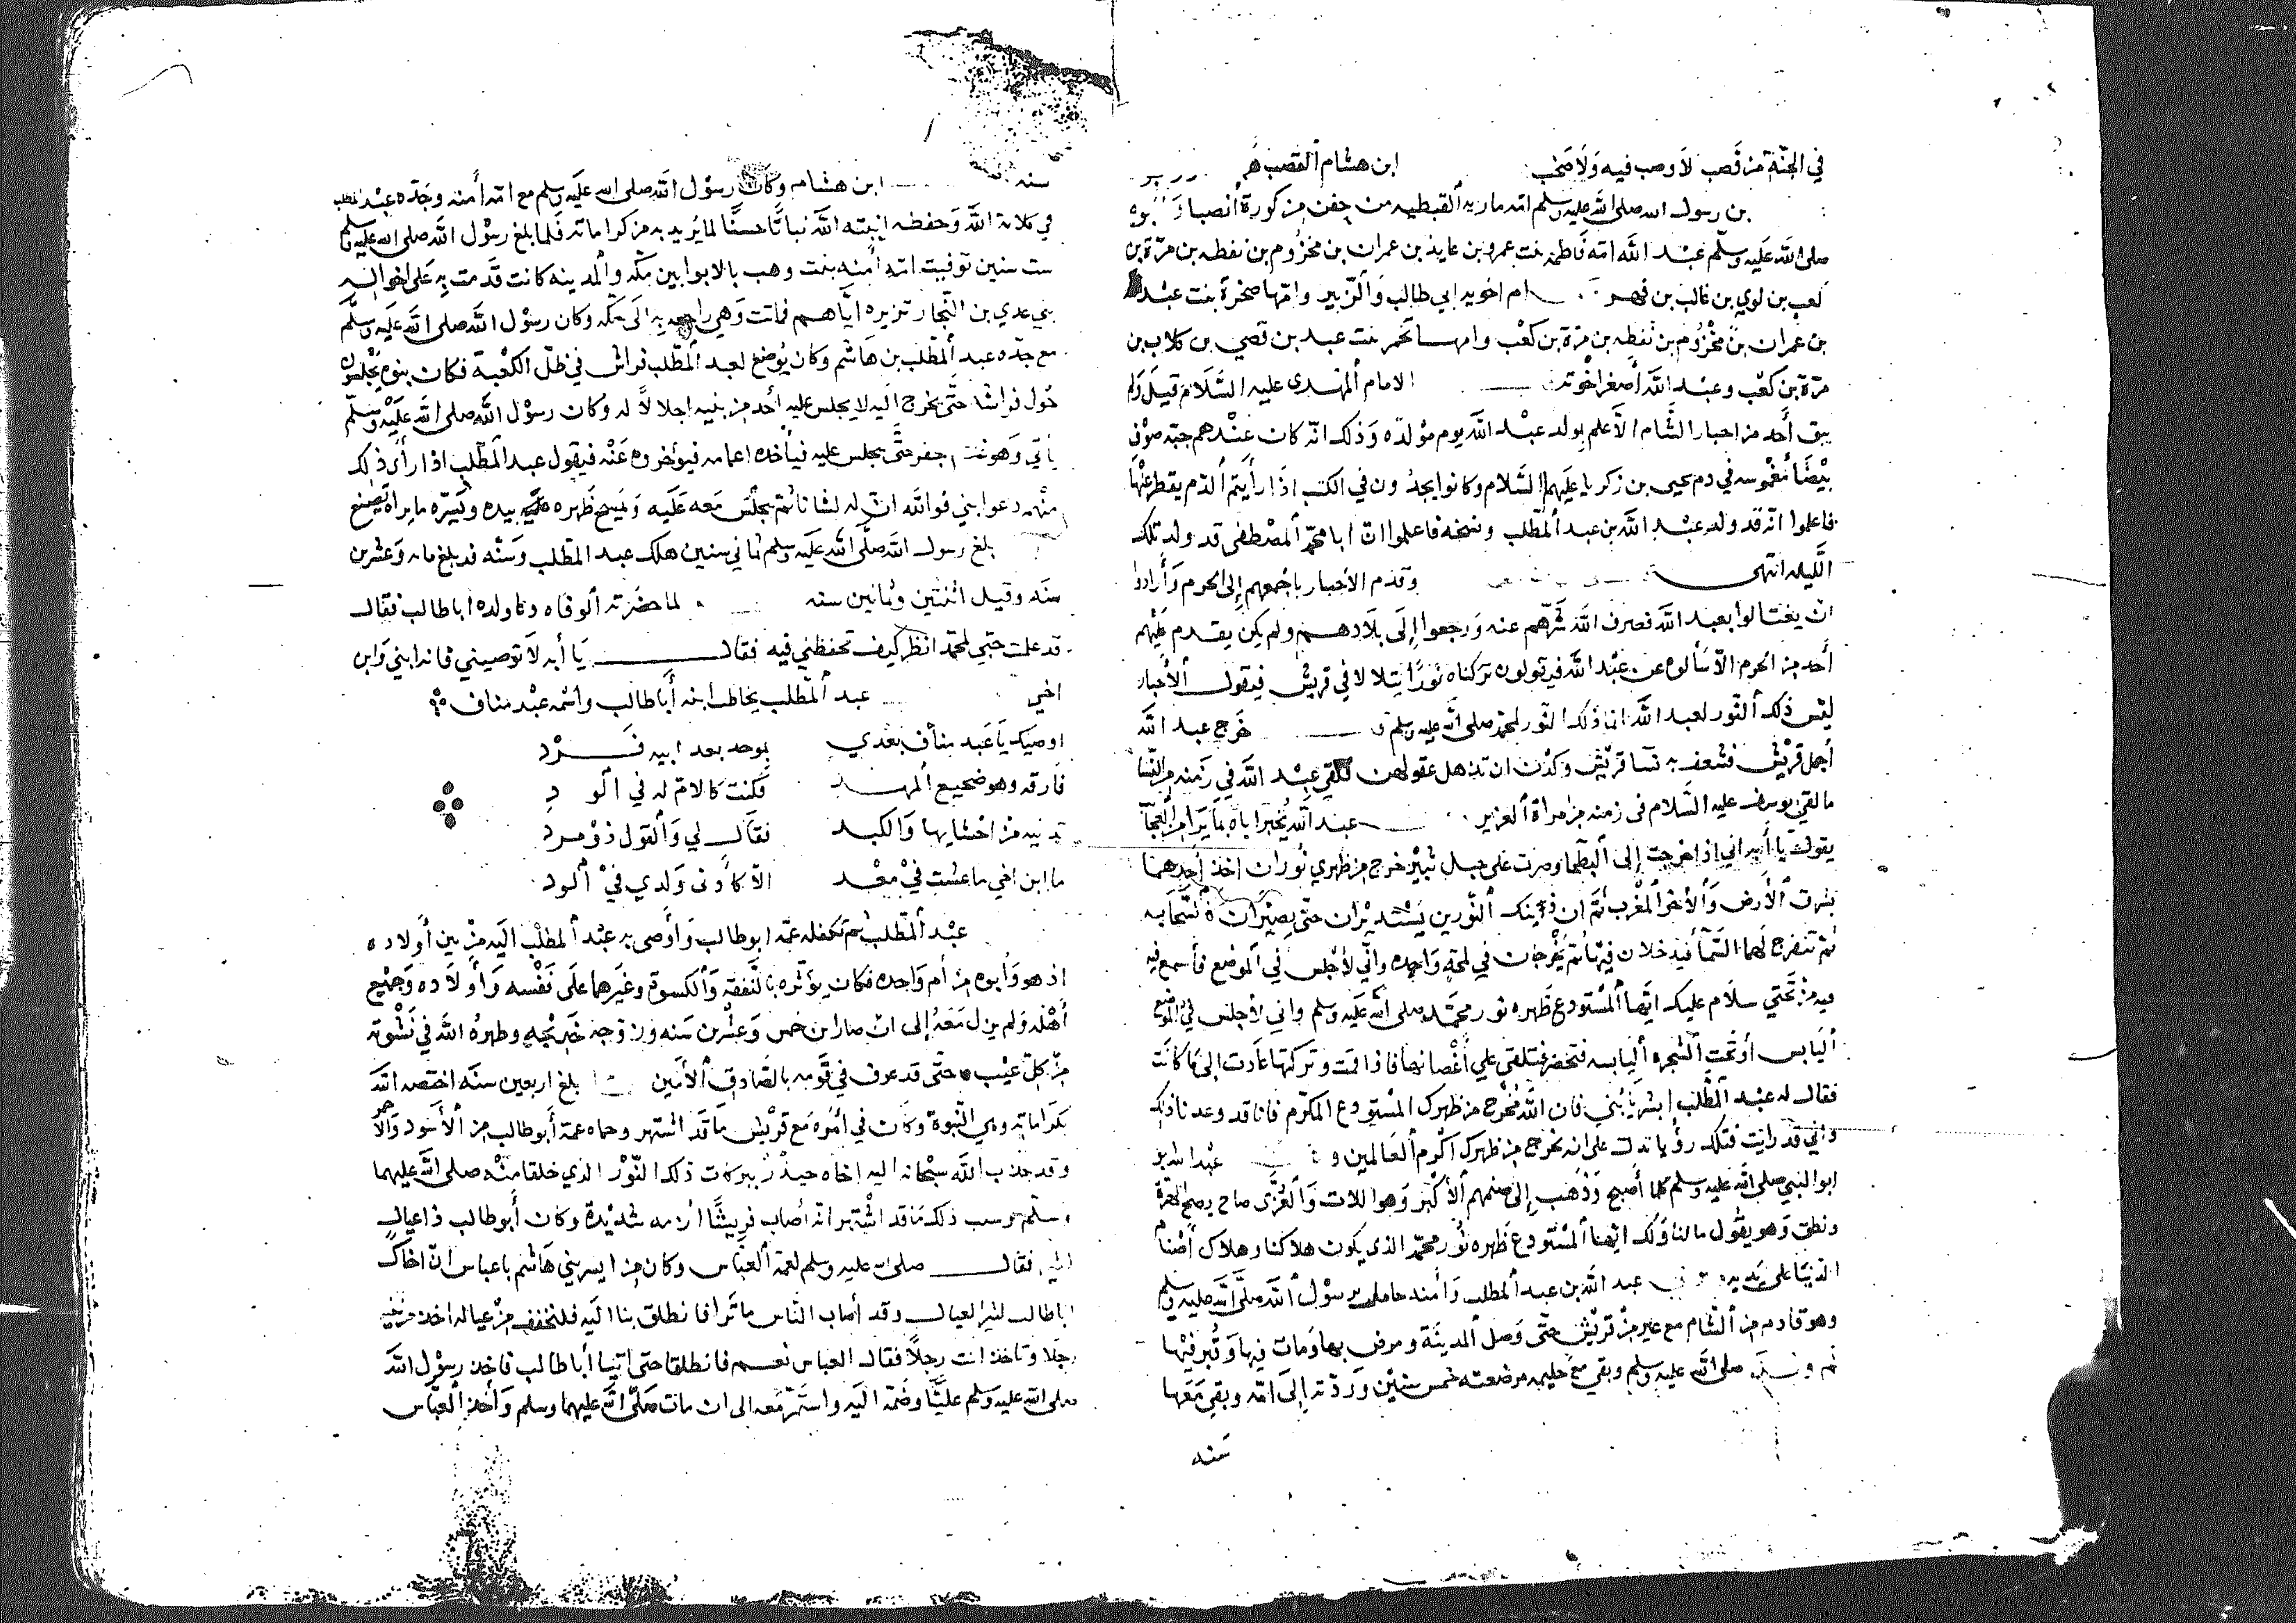 في الجنّة من قصب لا وصب فيه ولا صخب ابن هشام القصب
بن رسول الله صلى الله عليه وسلم امه ماريه القبطيه من جفن من كورة أنصبا وابوه
صلى الله عليه وسلم عبد الله امه فاطمة بنت عمرو بن عايذ بن عمران بن مخزوم بن نقطه بن مرّة بن
كعب بن لوي بن غالب بن فهر ام اخويه ابي طالب والزبير وامّها صخرة بنت عبد
بن عمران بن مخزوم بن نقطه بن مرّة بن كعب وامها تخمر بنت عبد بن قصي بن كلاب بن
مرّة بن كعب وعبد الله أصغر اخوته الامام المهدى عليه السّلام قيل ولم
يبق أحد من احبار الشّام الا علم بولد عبد الله يوم مولده وذلك انّه كان عندهم جبّه صوف
بيضا مغموسه في دم يحيى بن زكريا عليهما السّلام وكانوا يجدون في الكتب اذا رأيتم الدّم يقطر عنها
فاعلموا انّه قد ولد عبد الله بن عبد المطّلب ونسخه فاعلموا انّ ابا محمّد المصطفى قد ولد تلك
اللّيله انتهى وقدم الأحبار باجمعهم إلى الحرم وأرادوا
ان يغتالوا بعبد الله فصرف الله شرّهم عنه ورجعوا إلى بلادهم ولم يكن يقدم عليهم
أحد من الحرم الاّ سألوه عن عبد الله فيقولون تركناه نورًا يتلالا في قريش فيقول الأحبار
ليس ذلك النّور لعبد الله انما ذلك النّور لمحمّد صلى الله عليه وسلم خرج عبد الله
أجمل قريش فشعف به نسا قريش وكدن ان تذهل عقولهن فلقي عبد الله في زمنه من النّسا
ما لقي يوسف عليه السّلام في زمنه من امراة العزيز عبد الله يخبر اباه بما يرا من العجآ
يقول يا أبه اني اذا خرجت إلى البطحا وصرت على جبل ثبير خرج من ظهري نوران اخذ أحدهما
بشرق الأرض والأخر المغرب ثم ان ذينك النّورين يستديران حتّى يصيران كالسّحابه
ثم تنفرج لهما السّمآ فيدخلان فيها ثم يخرجان في لمحة واحده وانّي لأجلس في الموضع فأسمع فيه
فيه من تحتي سلام عليك ايّها المستودع ظهره نور محمّد صلى الله عليه وسلم واني لأجلس في الموضع
اليابس أو تحت الشجره اليابسه فتخضر فتلقى علي أغصانها فاذا قمت وتركتها عادت إلى ما كانت
فقال له عبد المطّلب ابشر يا بُني فان الله مخرج من ظهرك المستودع المكرّم فانا قد وعدنا ذلك
واني قد رايت قبلك رؤيا تدل على انه يخرج من ظهرك اكرم العالمين و عبد الله بن
ابو النبي صلى الله عليه وسلم كلما أصبح وذهب إلى صنمهم الأكبر وهو اللات والعزّى صاح
ونطق وهو يقول ما لنا ولك ايّها المستودع ظهره نور محمّد الذي يكون هلاكنا وهلاك أصنام
الدّنيا على يديه عبد الله بن عبد المطلب وأمنه حامل برسول الله صلى الله عليه وسلم
وهو قادم من الشام مع عير من قريش حتّى وصل المدينة ومرض بها ومات فيها وقُبر فيها
صلى الله عليه وسلم وبقي مع حليمه مرضعته خمس سنين وردّته إلى امّه وبقي معها
سنه
سنه ابن هشام وكان رسول الله صلى الله عليه وسلم مع امّه أمنه وجدّه عبد المطلب
في كلاة الله وحفظه انبته الله نباتًا حسنًا لما يُريد به من كراماته فلما بلغ رسول الله صلى الله عليه وسلم
ست سنين توفيت امّه أمنه بنت وهب بالابوا بين مكّه والمدينه كانت قدمت به على اخواله
بني عدي بن النّجار تزيره ايّاهم فماتت وهي راجعه به الى مكّه وكان رسول الله صلى الله عليه وسلّم
مع جدّه عبد المطّلب بن هاشم وكان يُوضع لعبد المطّلب فراش في ظلّ الكعبة فكان بنوه يجلسون
حول فراشه حتّى يخرج اليه لا يجلس عليه أحد من بنيه اجلالاً له وكان رسول الله صلى الله عليه وسلم
يأتي وهو غلام جفر حتّى يجلس عليه فيأخذه اعمامه فيؤخروه عنه فيقول عبد المطّلب اذا رأى ذلك
منهم دعوا بني فوالله انّ له لشانا ثم يجلس معه عليه ويمسح ظهره بيده ويسرّه ما يراه يصنع
بلغ رسول الله صلّى الله عليه وسلم ثماني سنين هلك عبد المطّلب وسنّه قد بلغ مايه وعشرين
سنه وقيل اثنتين وثمانين سنه لما حضرته الوفاه دعا ولده اباطالب فقال
قد علمت حبّي لمحمّد انظر كيف تحفظني فيه فقال يا أبه لا توصيني فانه ابني وابن
اخي عبد المطّلب يخاطب ابنه أبا طالب واسمه عبد مناف
اوصيك يا عبد مناف بعدي بموحد بعد ابيه فرد
فارقه وهو ضجيع المهد فكنت كالام له في الو د
تدنيه من احشايها والكبد فقال لي والقول ذو مرد
ما ابن اخي ما عشت في معد الا كأدنى ولدي في الود
عبد المطّلب ثم تكفله عمّه ابو طالب وأوصى به عبد المطلب اليه من بين أولاده
اذ هو وأبوه من أم واحده فكان يؤثره بالنّفقه والكسوة وغيرهما على نفسه وأولاده وجميع
أهله ولم يزل معه إلى ان صار ابن خمس وعشرين سنه وزوجه خديجه وطهره الله في نشوته
من كل عيب حتّى قد عرف في قومه بالصّادق الأمين بلغ اربعين سنه اختصه الله
بكراماته وهي النّبوة وكان في أموره مع قريش ما قد اشتهر وحماه عمّه أبو طالب من الأسود والأحمر
وقد جذب الله سبحانه اليه اخاه حيدر ببركات ذلك النّور الذي خلقا منه صلى الله عليهما
وسلم وسبب ذلك ما قد اشتهر انه أصاب قريشًا ازمه شديدة وكان أبو طالب ذا عيال
فقال صلى الله عليه وسلم لعمّه العبّاس وكان من ايسر بني هاشم يا عباس انّ اخاك
ابا طالب كثير العيال وقد أصاب النّاس ما ترا فانطلق بنا اليه فلنخفف من عياله اخذ من بنيه
رجلا وتاخذ انت رجلاً فقال العباس نعم فانطلقا حتى أتيا أبا طالب فاخذ رسول الله
صلى الله عليه وسلم عليًّا وضمّه اليه واستمر معه الى ان مات صلّى الله عليهما وسلم وأخذ العبّاس